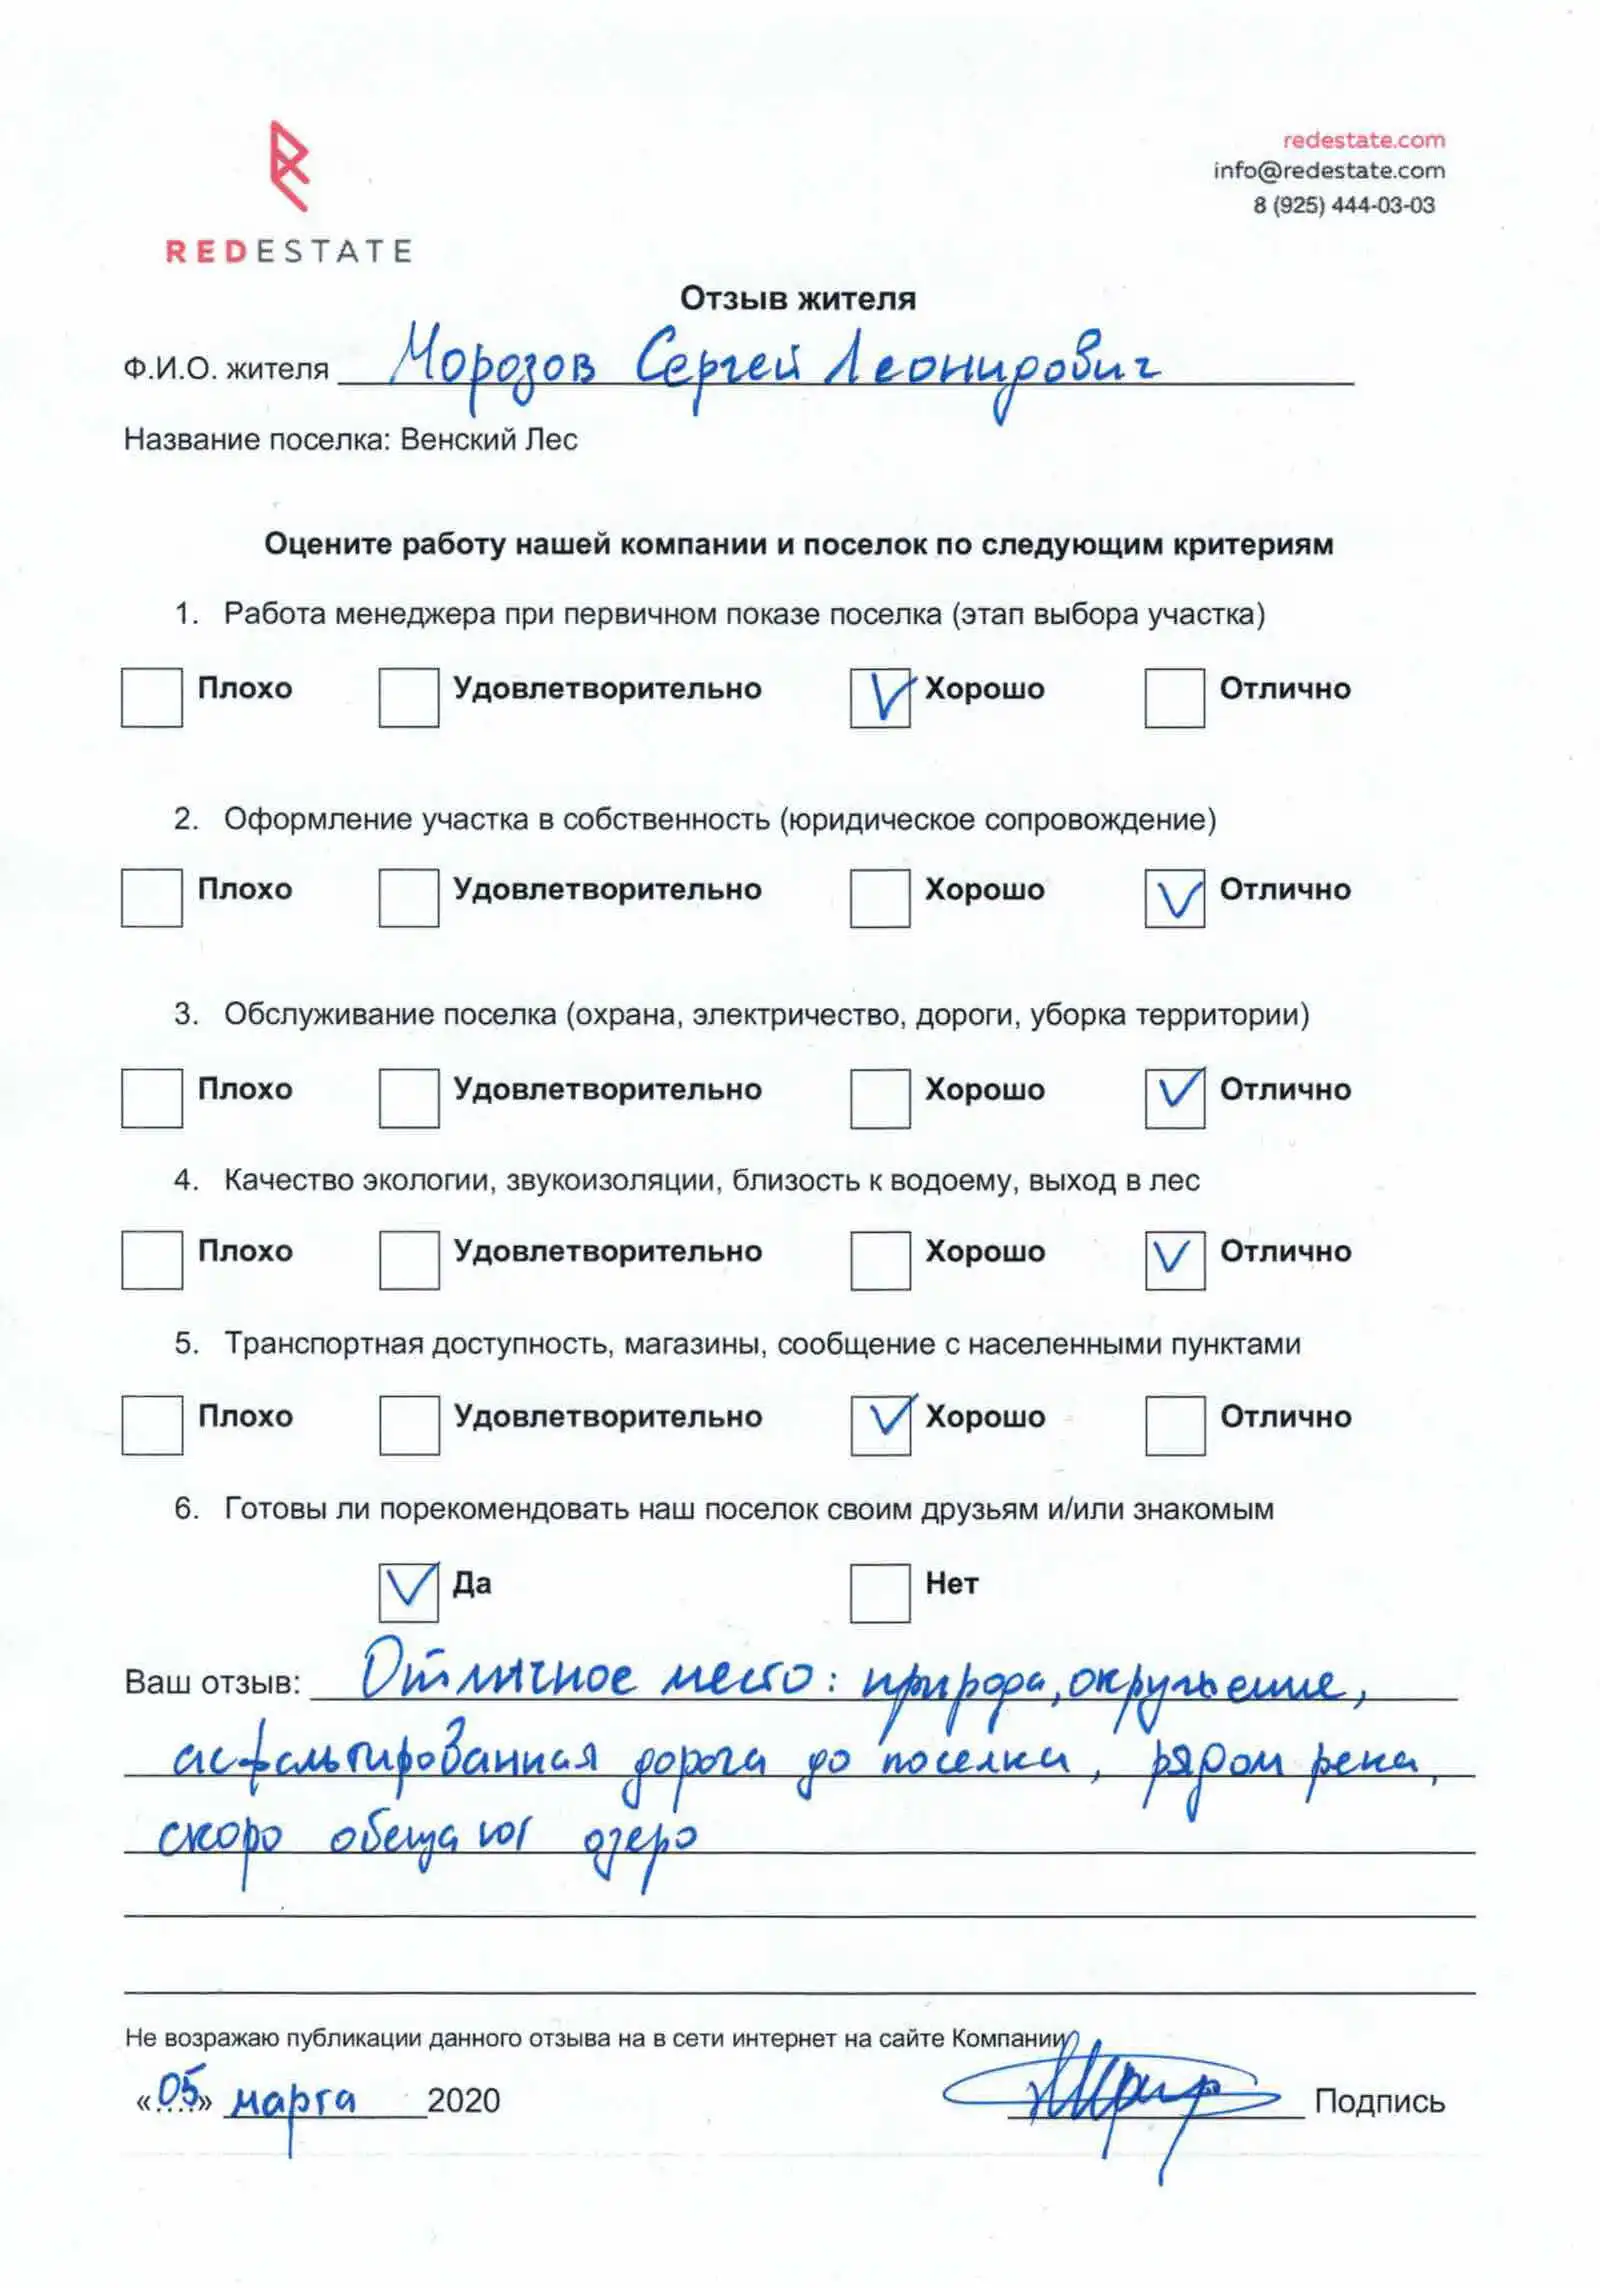 redestate.com
info@redestate.com
8 (925) 444-03-03
REDESTATE
Отзыв жителя
Ф.И.О. жителя Морозов Сергей Леонидович
Название поселка: Венский Лес
Оцените работу нашей компании и поселок по следующим критериям
1. Работа менеджера при первичном показе поселка (этап выбора участка)
Плохо Удовлетворительно Хорошо Отлично
2. Оформление участка в собственность (юридическое сопровождение)
Плохо Удовлетворительно Хорошо Отлично
3. Обслуживание поселка (охрана, электричество, дороги, уборка территории)
Плохо Удовлетворительно Хорошо Отлично
4. Качество экологии, звукоизоляции, близость к водоему, выход в лес
Плохо Удовлетворительно Хорошо Отлично
5. Транспортная доступность, магазины, сообщение с населенными пунктами
Плохо Удовлетворительно Хорошо Отлично
6. Готовы ли порекомендовать наш поселок своим друзьям и/или знакомым
Да Нет
Ваш отзыв: Отличное место: природа, окружение,
асфальтированная дорога до поселка, рядом река,
скоро обещают озеро
Не возражаю публикации данного отзыва на в сети интернет на сайте Компании
«05» марта 2020 Подпись